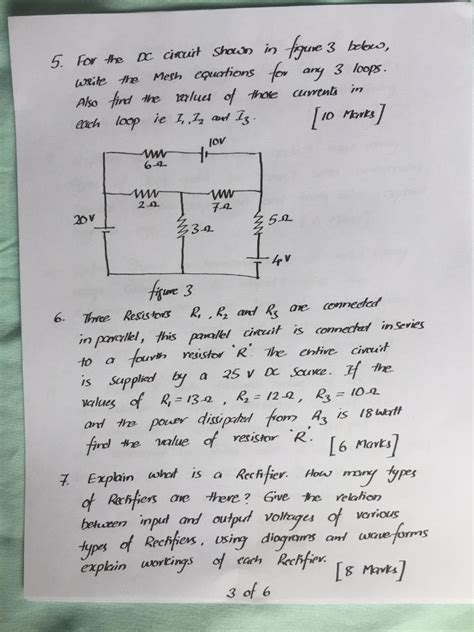 5. For the DC circuit shown in figure 3 below,
write the Mesh equations for any 3 loops.
Also find the values of those currents in
each loop ie I₁, I₂ and I₃. [10 Marks]
10V
6Ω
2Ω
7Ω
20V
3Ω
5Ω
4V
figure 3
6. Three Resistors R₁, R₂ and R₃ are connected
in parallel, this parallel circuit is connected in series
to a fourth resistor 'R'. The entire circuit
is supplied by a 25 V DC source. If the
values of R₁ = 13Ω, R₂ = 12Ω, R₃ = 10Ω
and the power dissipated from A₃ is 18 watt
find the value of resistor 'R'. [6 Marks]
7. Explain what is a Rectifier. How many types
of Rectifiers are there? Give the relation
between input and output voltages of various
types of Rectifiers, using diagrams and waveforms
explain workings of each Rectifier. [8 Marks]
3 of 6